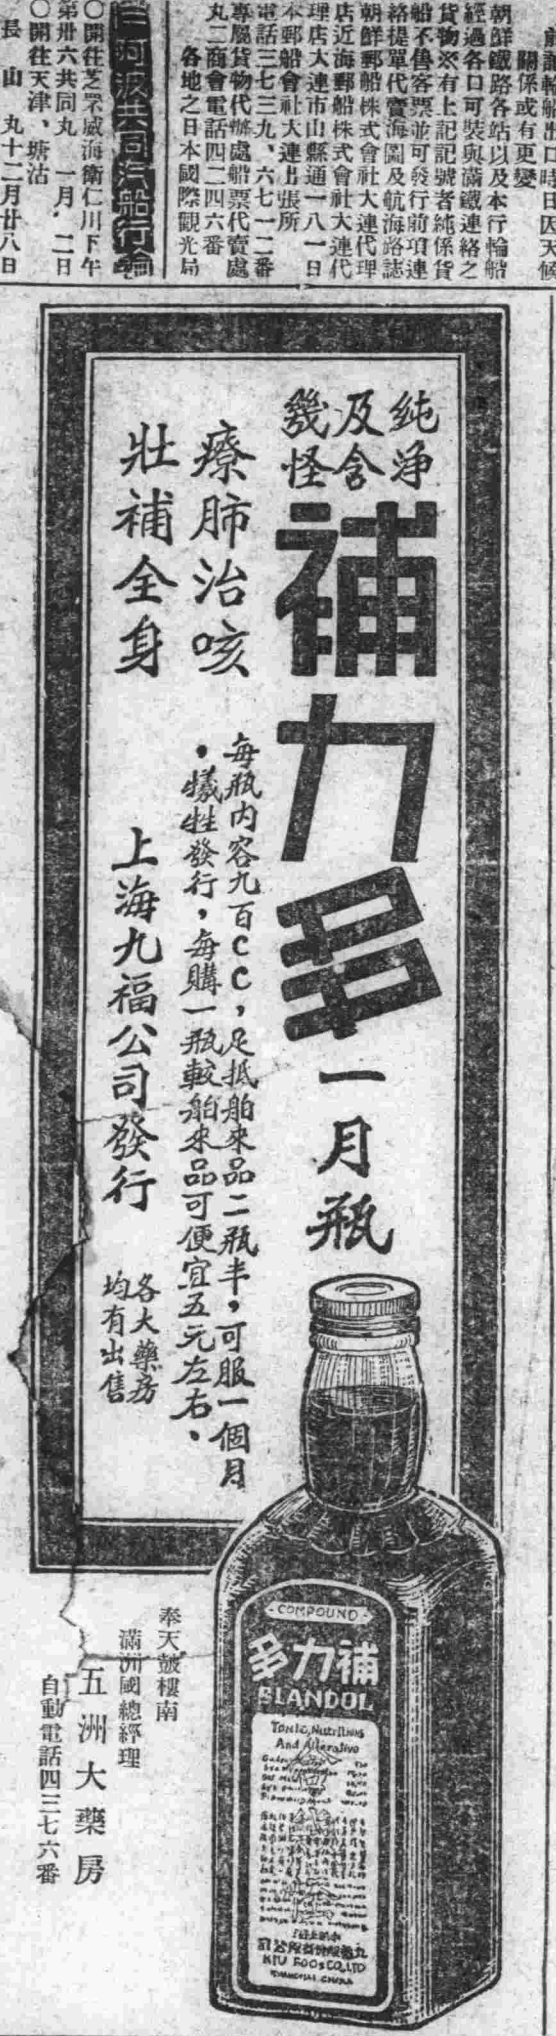 前記輪船出口時日因天候
關係或有更變
朝鮮鐵路各站以及本行輪船
經過各口可裝與滿鐵連絡之
貨物※有上記記號者純係貨
船不售客票並可發行前項連
絡提單代賣海圖及航海路誌
朝鮮郵船株式會社大連代理
店近海郵船株式會社大連代
理店大連市山縣通一八一日
本郵船會社大連出張所
電話三七三九、六七一二番
專屬貨物代辦處船票代賣處
丸二商會電話四二四六番
各地之日本國際觀光局
阿波共同汽船行輪
〇開往芝罘威海衛仁川下午
第卅六共同丸 一月 二日
〇開往天津、塘沽
長山丸十二月廿八日
純淨
及含
幾怪
補力多
一月瓶
療肺治咳
壯補全身
每瓶內容九百CC，足抵舶來品二瓶半，可服一個月
，犧牲發行，每購一瓶較舶來品可便宜五元左右、
上海九福公司發行
各大藥房
均有出售
COMPOUND
補力多
BLANDOL
Tonic, Nutritious
And Alterative
KIU FOO & CO., LTD
SHANGHAI CHINA
奉天鼓樓南
滿洲國總經理
五洲大藥房
自動電話四三七六番